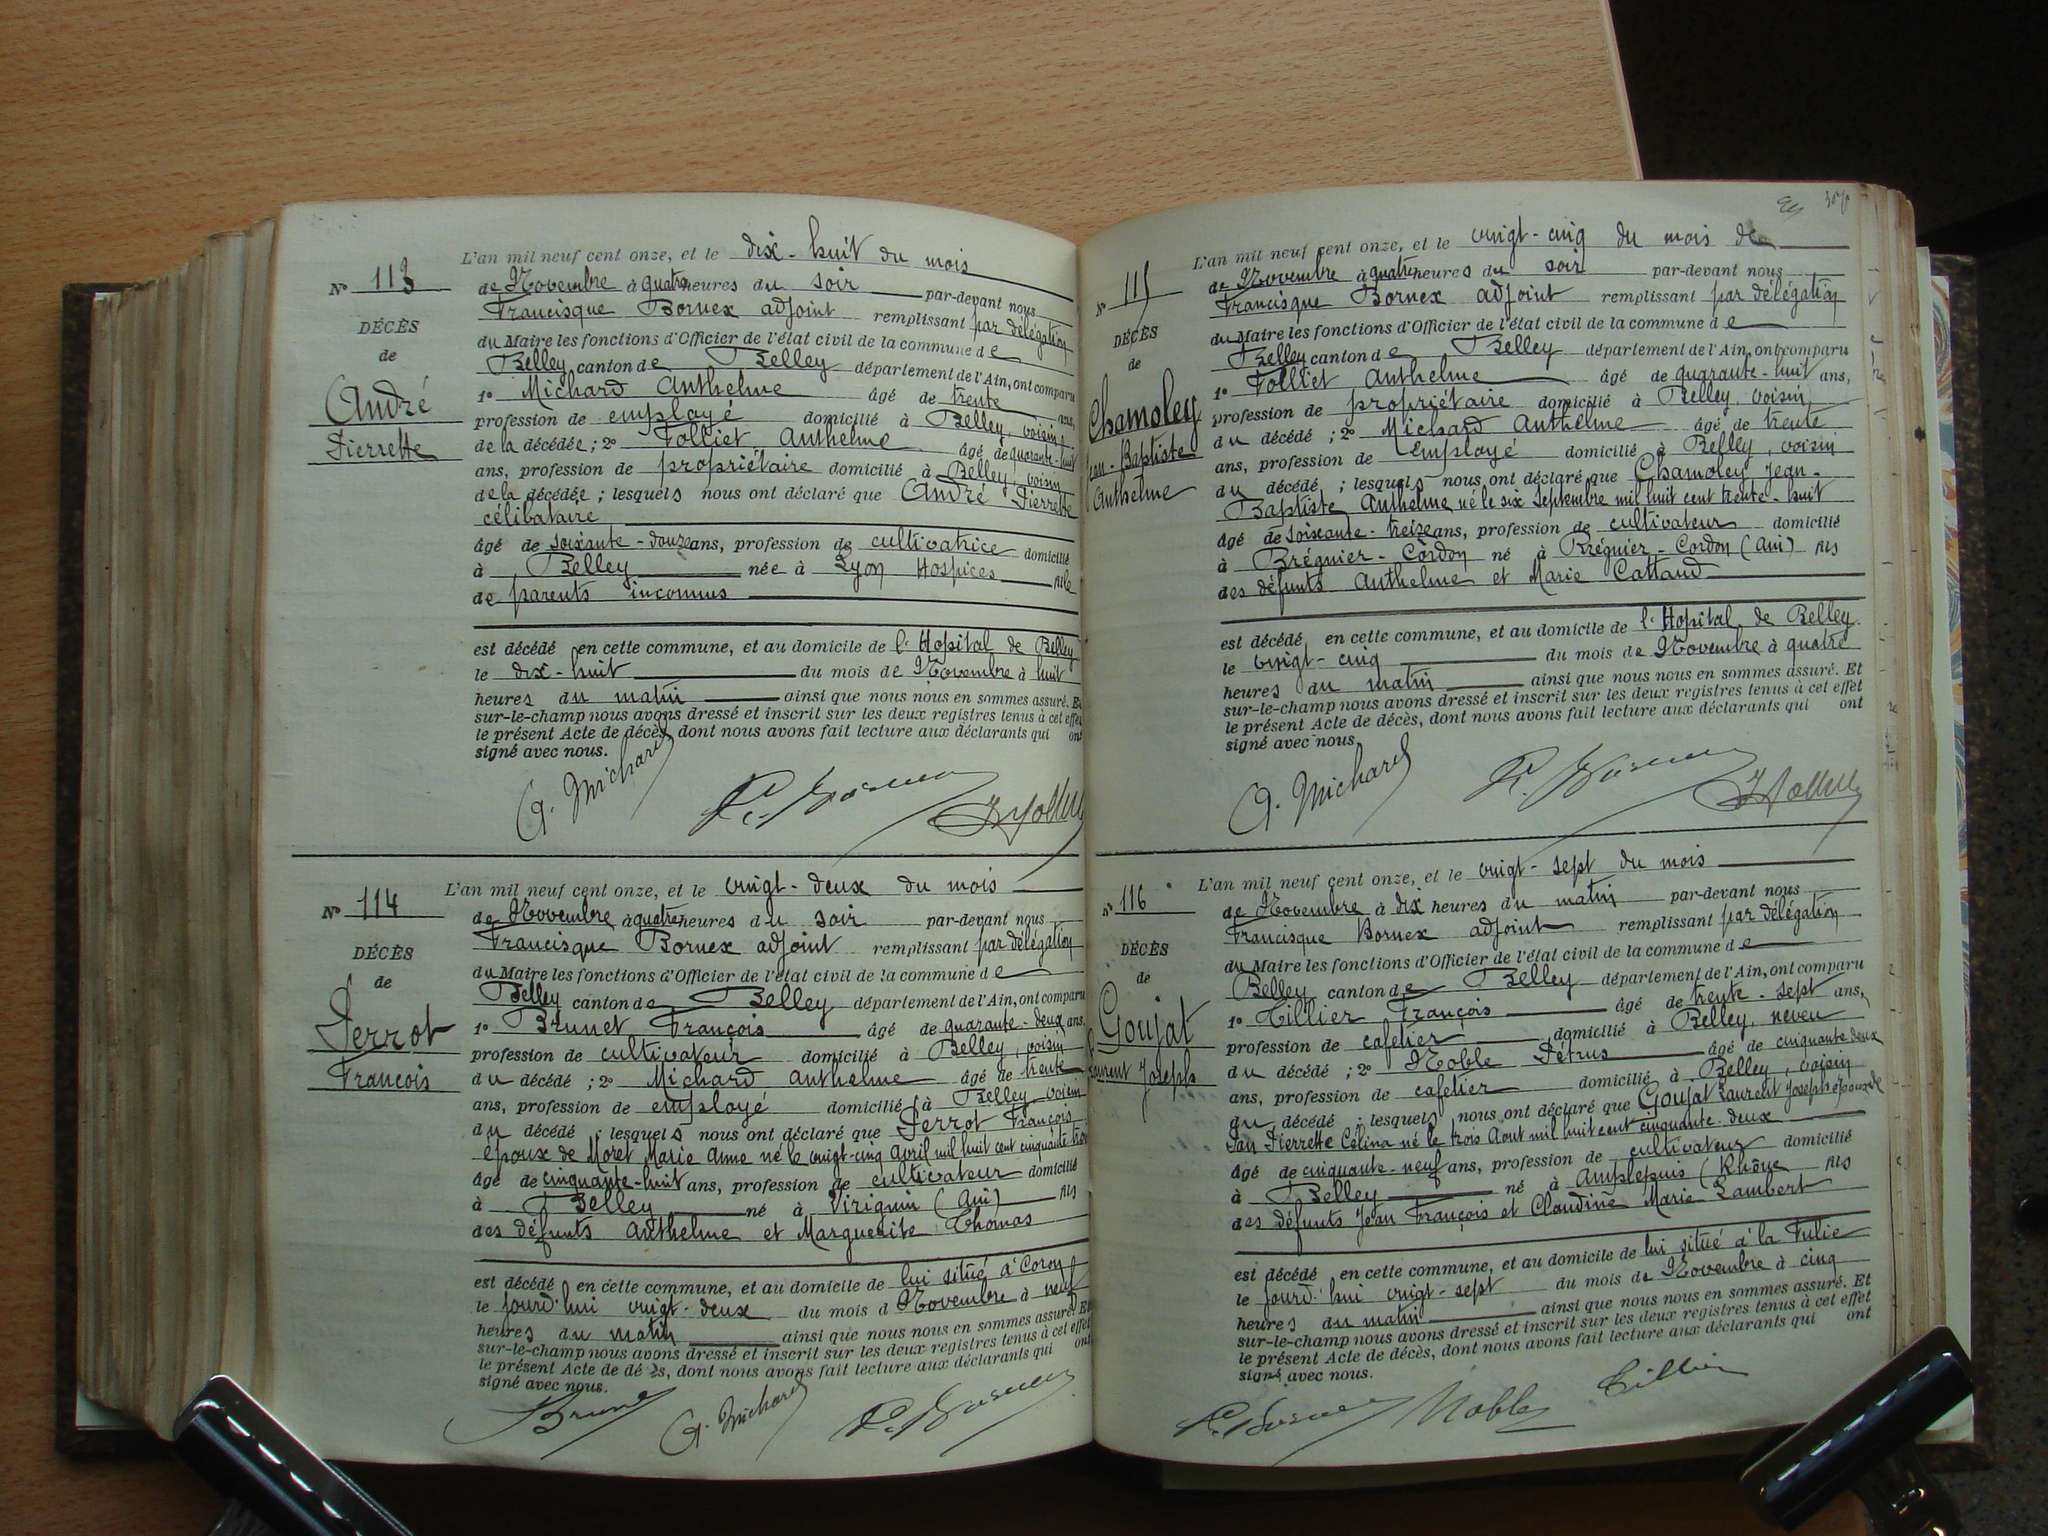 L'an mil neuf cent onze, et le dix-huit du mois
N° 113
de Novembre à quatre heures du soir par-devant nous
Francisque Bornex adjoint remplissant par délégation
DÉCÈS
du Maire les fonctions d'Officier de l'état civil de la commune de
de
Belley canton de Belley département de l'Ain, ont comparu
1° Michard Anthelme âgé de trente ans,
André
profession de employé domicilié à Belley, voisin
Pierrette
de la décédée ; 2° Folliet Anthelme âgé de quarante-huit
ans, profession de propriétaire domicilié à Belley, voisin
de la décédée ; lesquels nous ont déclaré que André Pierrette
célibataire
âgé de soixante-douze ans, profession de cultivatrice domicilié
à Belley née à Lyon Hospices fille
de parents inconnus
est décédé en cette commune, et au domicile de l'Hopital de Belley
le dix-huit du mois de Novembre à huit
heures du matin ainsi que nous nous en sommes assuré. Et
sur-le-champ nous avons dressé et inscrit sur les deux registres tenus à cet effet
le présent Acte de décès, dont nous avons fait lecture aux déclarants qui ont
signé avec nous.
A. Michard
L'an mil neuf cent onze, et le vingt-deux du mois
N° 114
de Novembre à quatre heures du soir par-devant nous
Francisque Bornex adjoint remplissant par délégation
DÉCÈS
du Maire les fonctions d'Officier de l'état civil de la commune de
de
Belley canton de Belley département de l'Ain, ont comparu
Perrot
1° Brunet François âgé de quarante-deux ans,
profession de cultivateur domicilié à Belley, voisin
François
du décédé ; 2° Michard Anthelme âgé de trente
ans, profession de employé domicilié à Belley voisin
du décédé ; lesquels nous ont déclaré que Perrot François
époux de Moret Marie Anne né le vingt-cinq Avril mil huit cent cinquante trois
âgé de cinquante-huit ans, profession de cultivateur domicilié
à Belley né à Virignin (Ain) fils
des défunts Anthelme et Marguerite Thomas
est décédé en cette commune, et au domicile de lui situé à Coron
le jourd'hui vingt-deux du mois d Novembre à neuf
heures du matin ainsi que nous nous en sommes assuré. Et
sur-le-champ nous avons dressé et inscrit sur les deux registres tenus à cet effet
le présent Acte de décès, dont nous avons fait lecture aux déclarants qui ont
signé avec nous.
Brunet A. Michard
L'an mil neuf cent onze, et le vingt-cinq du mois de
N° 115
de Novembre à quatre heures du soir par-devant nous
Francisque Bornex adjoint remplissant par délégation
DÉCÈS
du Maire les fonctions d'Officier de l'état civil de la commune de
de
Belley canton de Belley département de l'Ain, ont comparu
1° Folliet Anthelme âgé de quarante-huit ans,
Chamoley
profession de propriétaire domicilié à Belley, voisin
Jean-Baptiste
du décédé ; 2° Michard Anthelme âgé de trente
Anthelme
ans, profession de employé domicilié à Belley, voisin
du décédé ; lesquels nous ont déclaré que Chamoley Jean-
Baptiste Anthelme né le six Septembre mil huit cent trente-huit
âgé de soixante-treize ans, profession de cultivateur domicilié
à Brégnier-Cordon né à Brégnier-Cordon (Ain) fils
des défunts Anthelme et Marie Cattaud
est décédé en cette commune, et au domicile de l'Hopital de Belley
le vingt-cinq du mois de Novembre à quatre
heures du matin ainsi que nous nous en sommes assuré. Et
sur-le-champ nous avons dressé et inscrit sur les deux registres tenus à cet effet
le présent Acte de décès, dont nous avons fait lecture aux déclarants qui ont
signé avec nous
A. Michard
L'an mil neuf cent onze, et le vingt-sept du mois
N° 116
de Novembre à dix heures du matin par-devant nous
Francisque Bornex adjoint remplissant par délégation
DÉCÈS
du Maire les fonctions d'Officier de l'état civil de la commune de
de
Belley canton de Belley département de l'Ain, ont comparu
1° Tillier François âgé de trente-sept ans,
Goujat
profession de cafetier domicilié à Belley, neveu
Laurent Joseph
du décédé ; 2° Noble Pétrus âgé de cinquante deux
ans, profession de cafetier domicilié à Belley, voisin
du décédé ; lesquels nous ont déclaré que Goujat Laurent Joseph époux de
Pierrette Célina né le trois Aout mil huit cent cinquante-deux
âgé de cinquante-neuf ans, profession de cultivateur domicilié
à Belley né à Amplepuis (Rhône fils
des défunts Jean François et Claudine Marie Lambert
est décédé en cette commune, et au domicile de lui situé à la
le jourd'hui vingt-sept du mois de Novembre à cinq
heures du matin ainsi que nous nous en sommes assuré. Et
sur-le-champ nous avons dressé et inscrit sur les deux registres tenus à cet effet
le présent Acte de décès, dont nous avons fait lecture aux déclarants qui ont
signé avec nous.
Noble Tillier